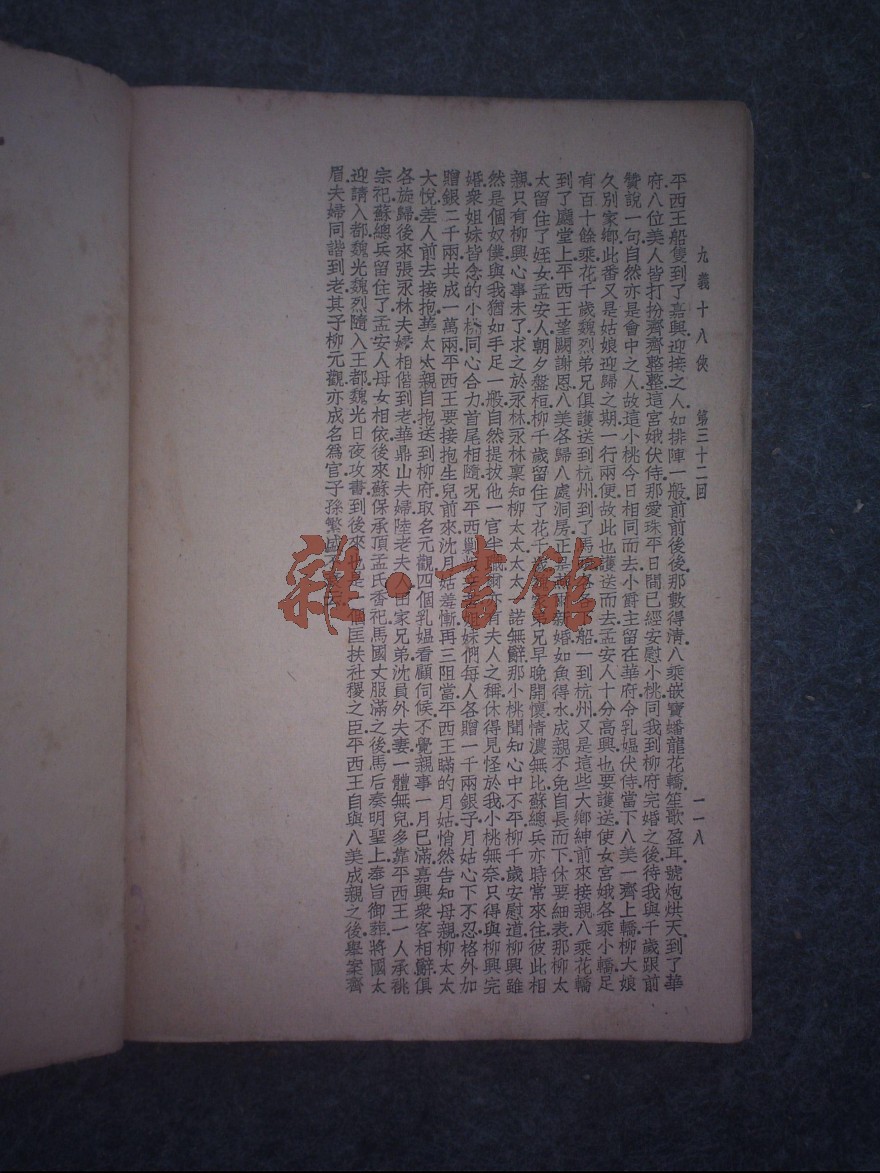 九義十八俠　第三十二回　一一八
平西王船隻到了嘉興.迎接之人.如排陣一般.前前後後.那數得清.八乘嵌寶蟠龍花轎.笙歌盈耳.號炮烘天.到了華
府.八位美人.皆打扮齊齊整整.這宮娥伏侍.那愛珠平日間已經安慰小桃.同我到柳府完婚之後.待我與千歲跟前
贊說一句.自然亦是會中之人.故這小桃今日相同而去.小爵主留在華府.令乳媪伏侍.當下八美一齊上轎.柳大娘
久別家鄉.此番又是姑娘迎歸之期.一行兩便.故此也護送而去.孟安人十分高興.也要護送使女宮娥各乘小轎.足
有百十餘乘.花千歲魏烈弟兄俱護送到杭州.到了馬 下船.一到杭州.又是這些大鄉紳前來接親.八乘花轎
到了廳堂上.平西王望闕謝恩.八美各歸八處洞房.正是 新婚如魚得水.成親不免自長而下.休要細表.那柳太
太留住了姪女孟安人.朝夕盤桓.柳千歲留住了花千歲 弟兄.早晚開懷.情濃無比.蘇總兵亦時常來往.彼此相
親.只有柳興心事未了.求之於永林.永林稟知柳太太.太太 諾無辭.那小桃聞知.心中不平.柳千歲安慰道.柳興雖
然是個奴僕.與我猶如手足一般.自然提拔他一官半職.爾亦有夫人之稱.休得見怪於我.小桃無奈.只得與柳興完
婚.衆姐妹皆念的小桃同心合力.首尾相隨.況平西 姐妹們每人各贈一千兩銀子.月姑心下不忍.格外加
贈銀二千兩.共成一萬兩.平西王要接抱生兒前來.沈月姑羞慚.再三阻當.平西王瞞的月姑.悄然告知母親.柳太太
大悅.差人前去接抱.華太太親自抱送到柳府.取名元觀.四個乳媪看顧伺候.不覺親事一月已滿.嘉興衆客相辭.俱
各旋歸.後來張永林夫婦相偕到老.華鼎山夫婦.陸老夫人.田家兄弟.沈員外夫妻.一體無兒.多靠平西王一人承祧
宗祀.蘇總兵留住了孟安人.母女相依.後來蘇保承頂孟氏香祀.馬國丈服滿之後.馬后奏明聖上.奉旨御葬.將國太
迎請入都.魏光魏烈隨入王都.魏光日夜攻書.到後來也是一個匡扶社稷之臣.平西王自與八美成親之後.舉案齊
眉.夫婦同諧到老.其子柳元觀.亦成名爲官.子孫繁盛.
雜·書館